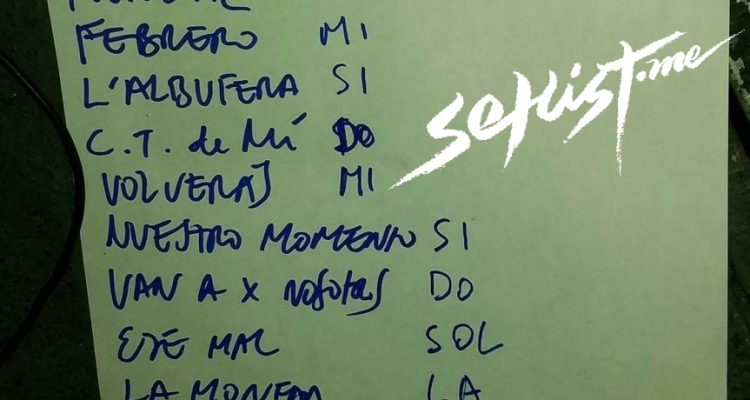 FEBRERO MI
L'ALBUFERA SI
C.T. de Mí DO
VOLVERAS MI
NUESTRO MOMENTO SI
VAN A X NOSOTROS DO
ESE MAL SOL
LA MONEDA LA
setlist.me